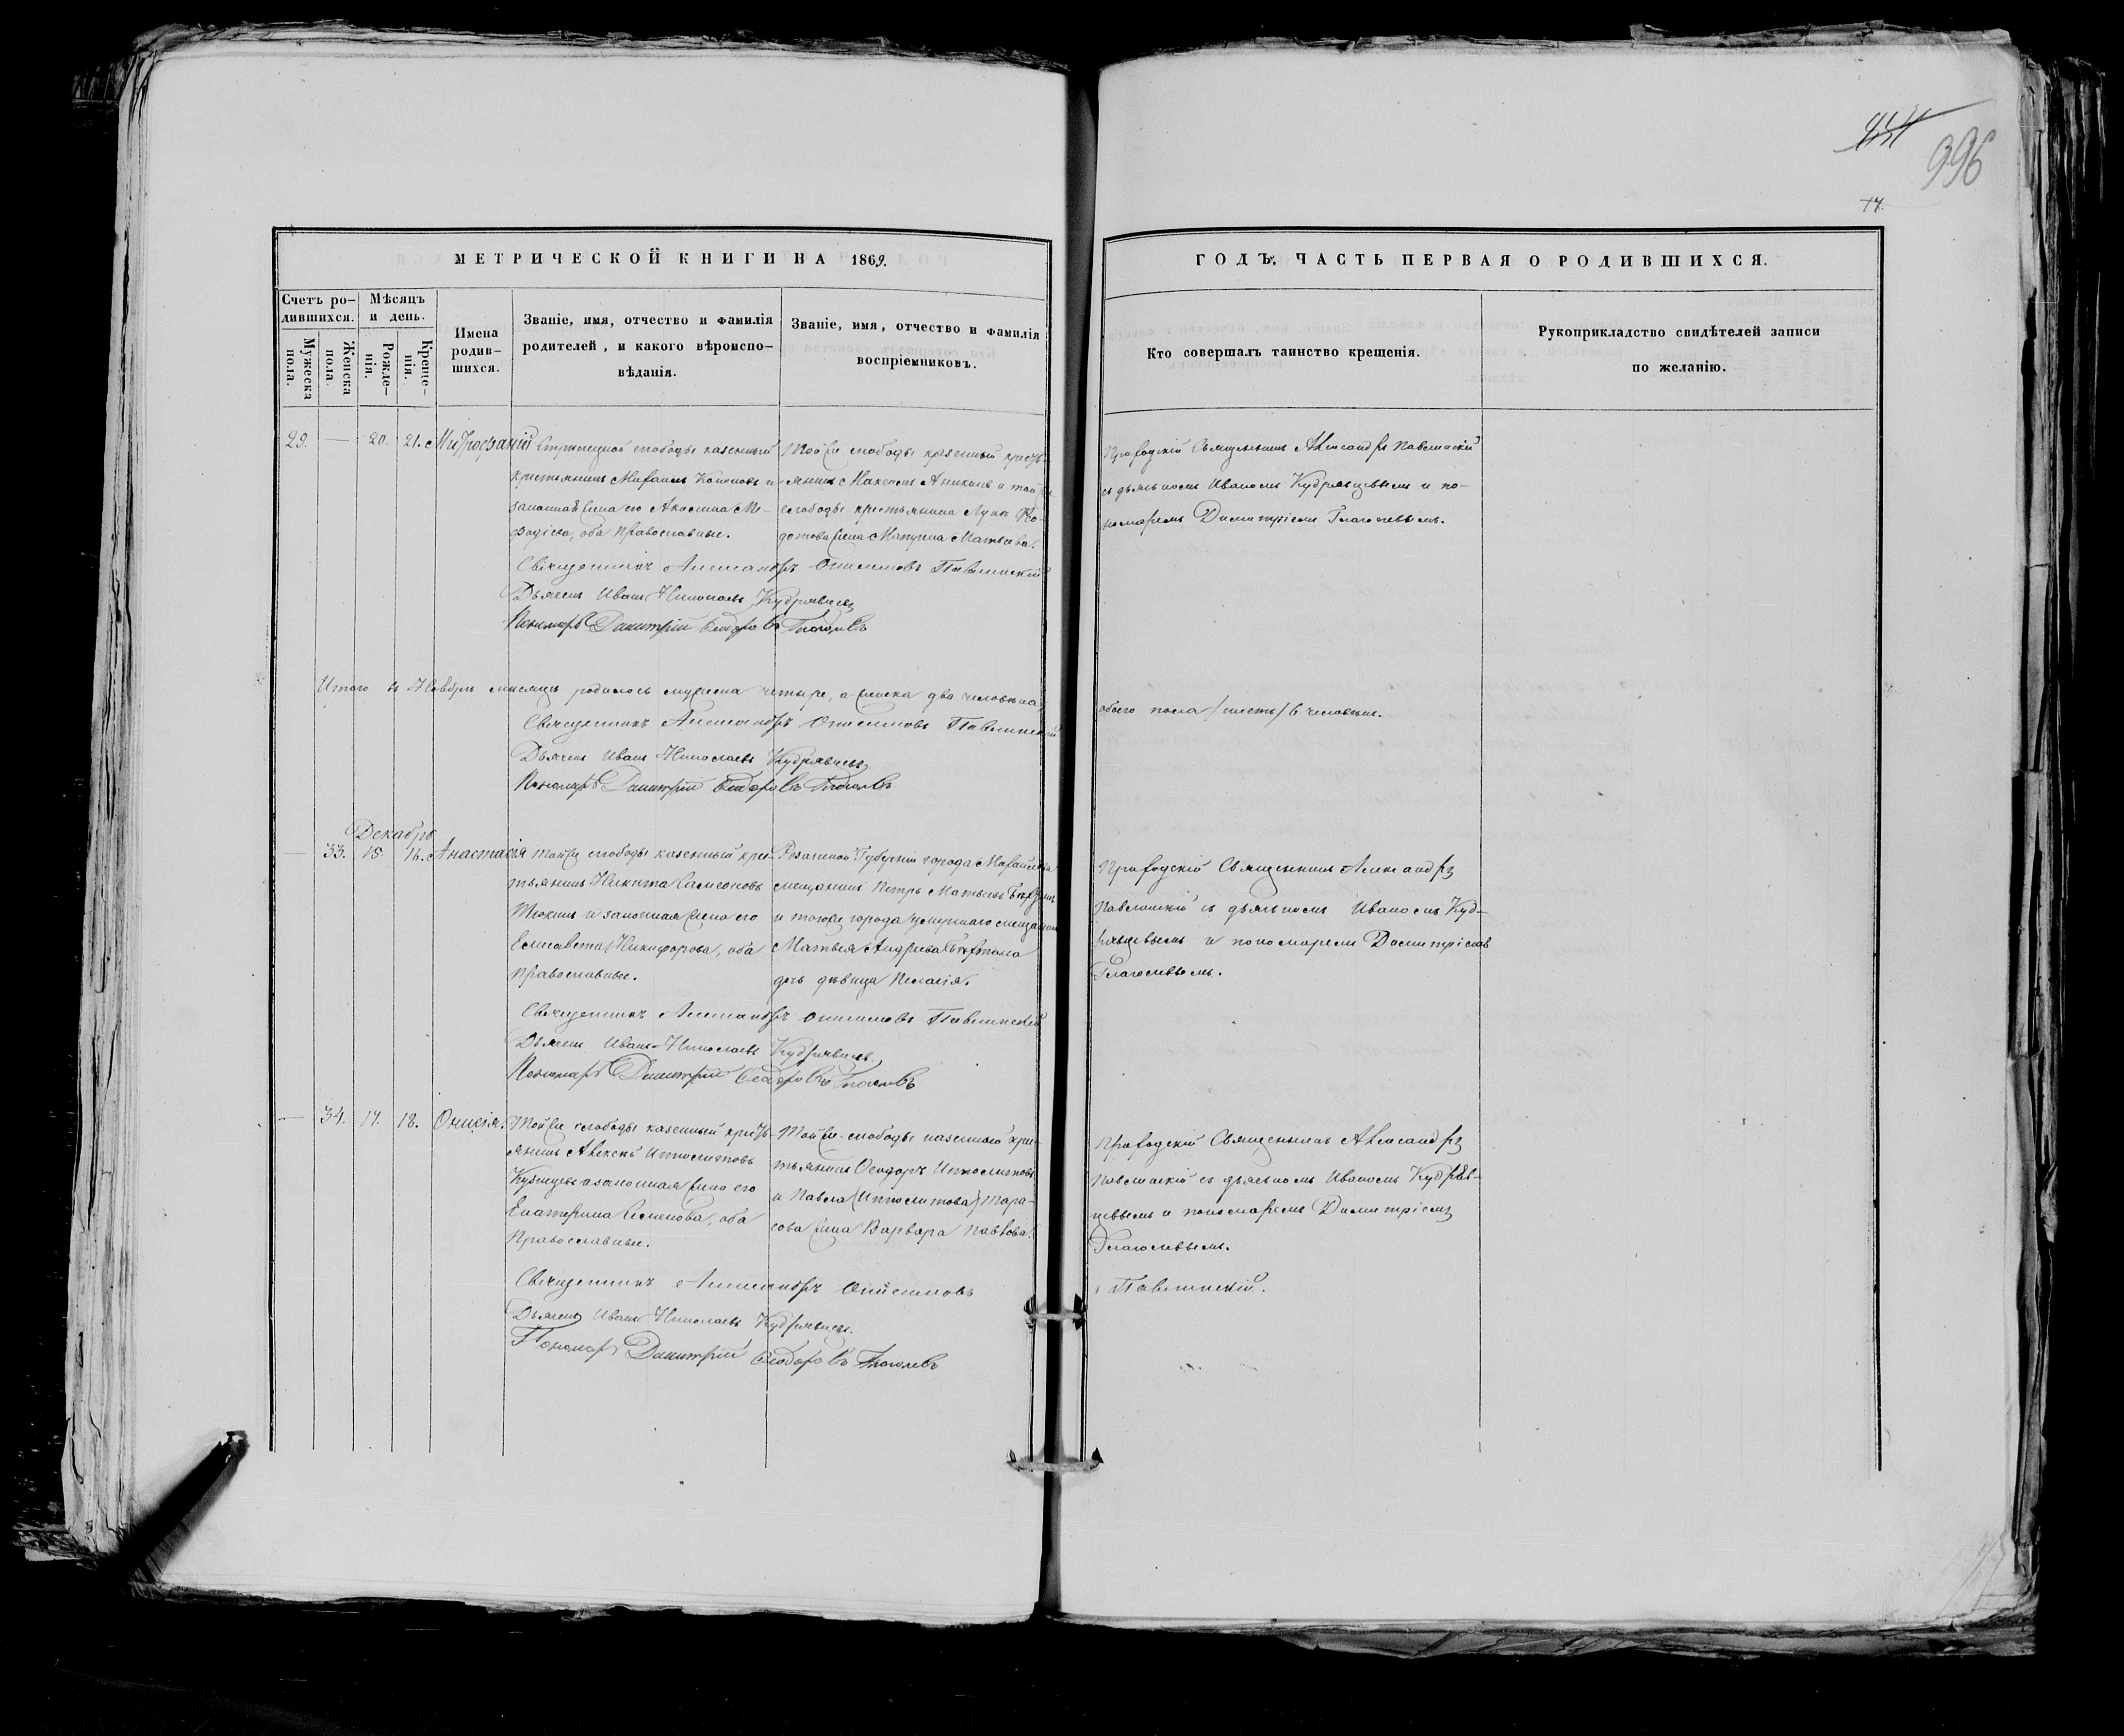 996
14.
МЕТРИЧЕСКОЙ КНИГИ НА 1869.
ГОДЪ, ЧАСТЬ ПЕРВАЯ О РОДИВШИХСЯ.
Счетъ ро-
дившихся.
Мужеска
пола.
Женска
пола.
Мѣсяцъ
и день.
Рожде-
нія.
Креще-
нія.
Имена
родив-
шихся.
Званіе, имя, отчество и фамилія
родителей, и какого вѣроиспо-
вѣданія.
Званіе, имя, отчество и фамилія
воспріемниковъ.
Кто совершалъ таинство крещенія.
Рукоприкладство свидѣтелей записи
по желанію.
29. — 20. 21. Митрофаній
слободы казенный
крестьянинъ Кононовъ и
законная жена его Акилина Ме-
фодіева, оба православные.
Той же слободы казенный кресть-
янинъ Максимъ Аникинъ и той же
слободы крестьянина Луки Ѳе-
дотова жена Матрена Матвеева.
Приходскій Священникъ Александръ Павлинскій
съ дьячкомъ Иваномъ Кудрявцевымъ и по-
номаремъ Димитріемъ Глаголевымъ.
Священникъ Александръ Онисимовъ Павлинскій
Дьячекъ Иванъ Николаевъ Кудрявцевъ
Пономарь Димитрій Ѳеодоровъ Глаголевъ
Итого въ Ноябрѣ месяцѣ родилось мужеска четыре, а женска два человека,
обоего пола (шесть) 6 человекъ.
Священникъ Александръ Онисимовъ Павлинскій
Дьячекъ Иванъ Николаевъ Кудрявцевъ
Пономарь Димитрій Ѳеодоровъ Глаголевъ
Декабрь
— 33. 15. 16. Анастасія
Той же слободы казенный крес-
тьянинъ Никита Самсоновъ
и законная жена его
Елисавета Никифорова, оба
православные.
Рязанской Губерніи города Михайлова
мещанинъ Петръ Матвеевъ
и того же города умершаго мещанина
Матвея Андреева
дочь девица Пелагія.
Приходскій Священникъ Александръ
Павлинскій съ дьячкомъ Иваномъ Куд-
рявцевымъ и пономаремъ Димитріемъ
Глаголевымъ.
Священникъ Александръ Онисимовъ Павлинскій
Дьячекъ Иванъ Николаевъ Кудрявцевъ
Пономарь Димитрій Ѳеодоровъ Глаголевъ
— 34. 17. 18.
Той же слободы казенный кресть-
янинъ Алексей Ипполитовъ
Кузнецовъ и законная жена его
Екатерина Семенова, оба
Православные.
Той же слободы казенный крес-
тьянинъ Ѳеодоръ Ипполитовъ
и Павла (Ипполитова) Тара-
сова жена Варвара Павлова.
Приходскій Священникъ Александръ
Павлинскій съ дьячкомъ Иваномъ Кудряв-
цевымъ и пономаремъ Димитріемъ
Глаголевымъ.
Священникъ Александръ Онисимовъ Павлинскій.
Дьячекъ Иванъ Николаевъ Кудрявцевъ.
Пономарь Димитрій Ѳеодоровъ Глаголевъ